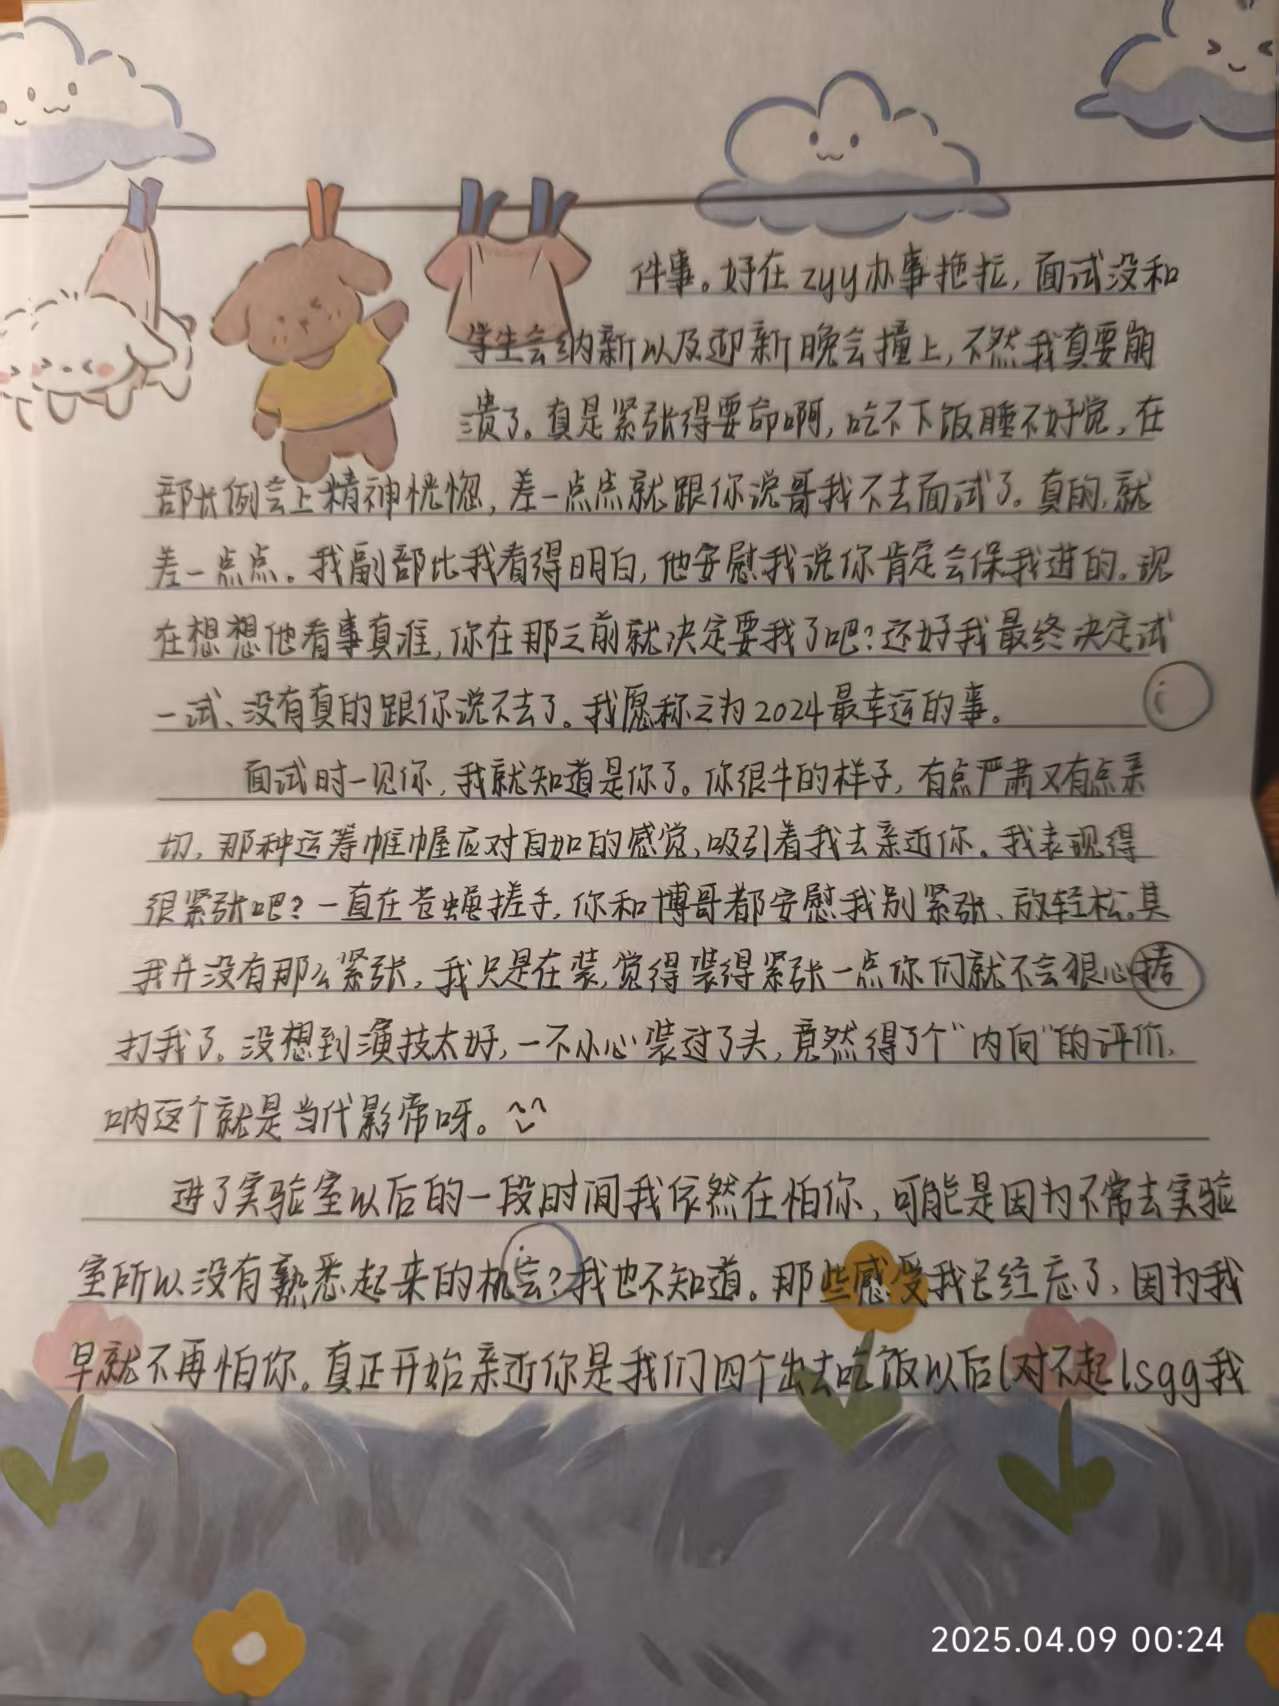 件事。好在zyy办事拖拉,面试没和
学生会纳新以及迎新晚会撞上,不然我真要崩
溃了。真是紧张得要命啊,吃不下饭睡不好觉,在
部长例会上精神恍惚,差一点点就跟你说哥我不去面试了。真的,就
差一点点。我副部比我看得明白,他安慰我说你肯定会保我进的。现
在想想他看事真准,你在那之前就决定要我了吧?还好我最终决定试
一试、没有真的跟你说不去了。我愿称之为2024最幸运的事。
面试时一见你,我就知道是你了。你很牛的样子,有点严肃又有点亲
切,那种运筹帷幄应对自如的感觉,吸引着我去亲近你。我表现得
很紧张吧?一直在苍蝇搓手,你和博哥都安慰我别紧张、放轻松。其
我并没有那么紧张,我只是在装,觉得装得紧张一点你们就不会狠心
打我了。没想到演技太好,一不小心装过了头,竟然得了个“内向”的评价,
呐这个就是当代影帝呀。^^
进了实验室以后的一段时间我依然在怕你,可能是因为不常去实验
室所以没有熟悉起来的机会?我也不知道。那些感受我已经忘了,因为我
早就不再怕你。真正开始亲近你是我们四个出去吃饭以后(对不起lsgg我
2025.04.09 00:24